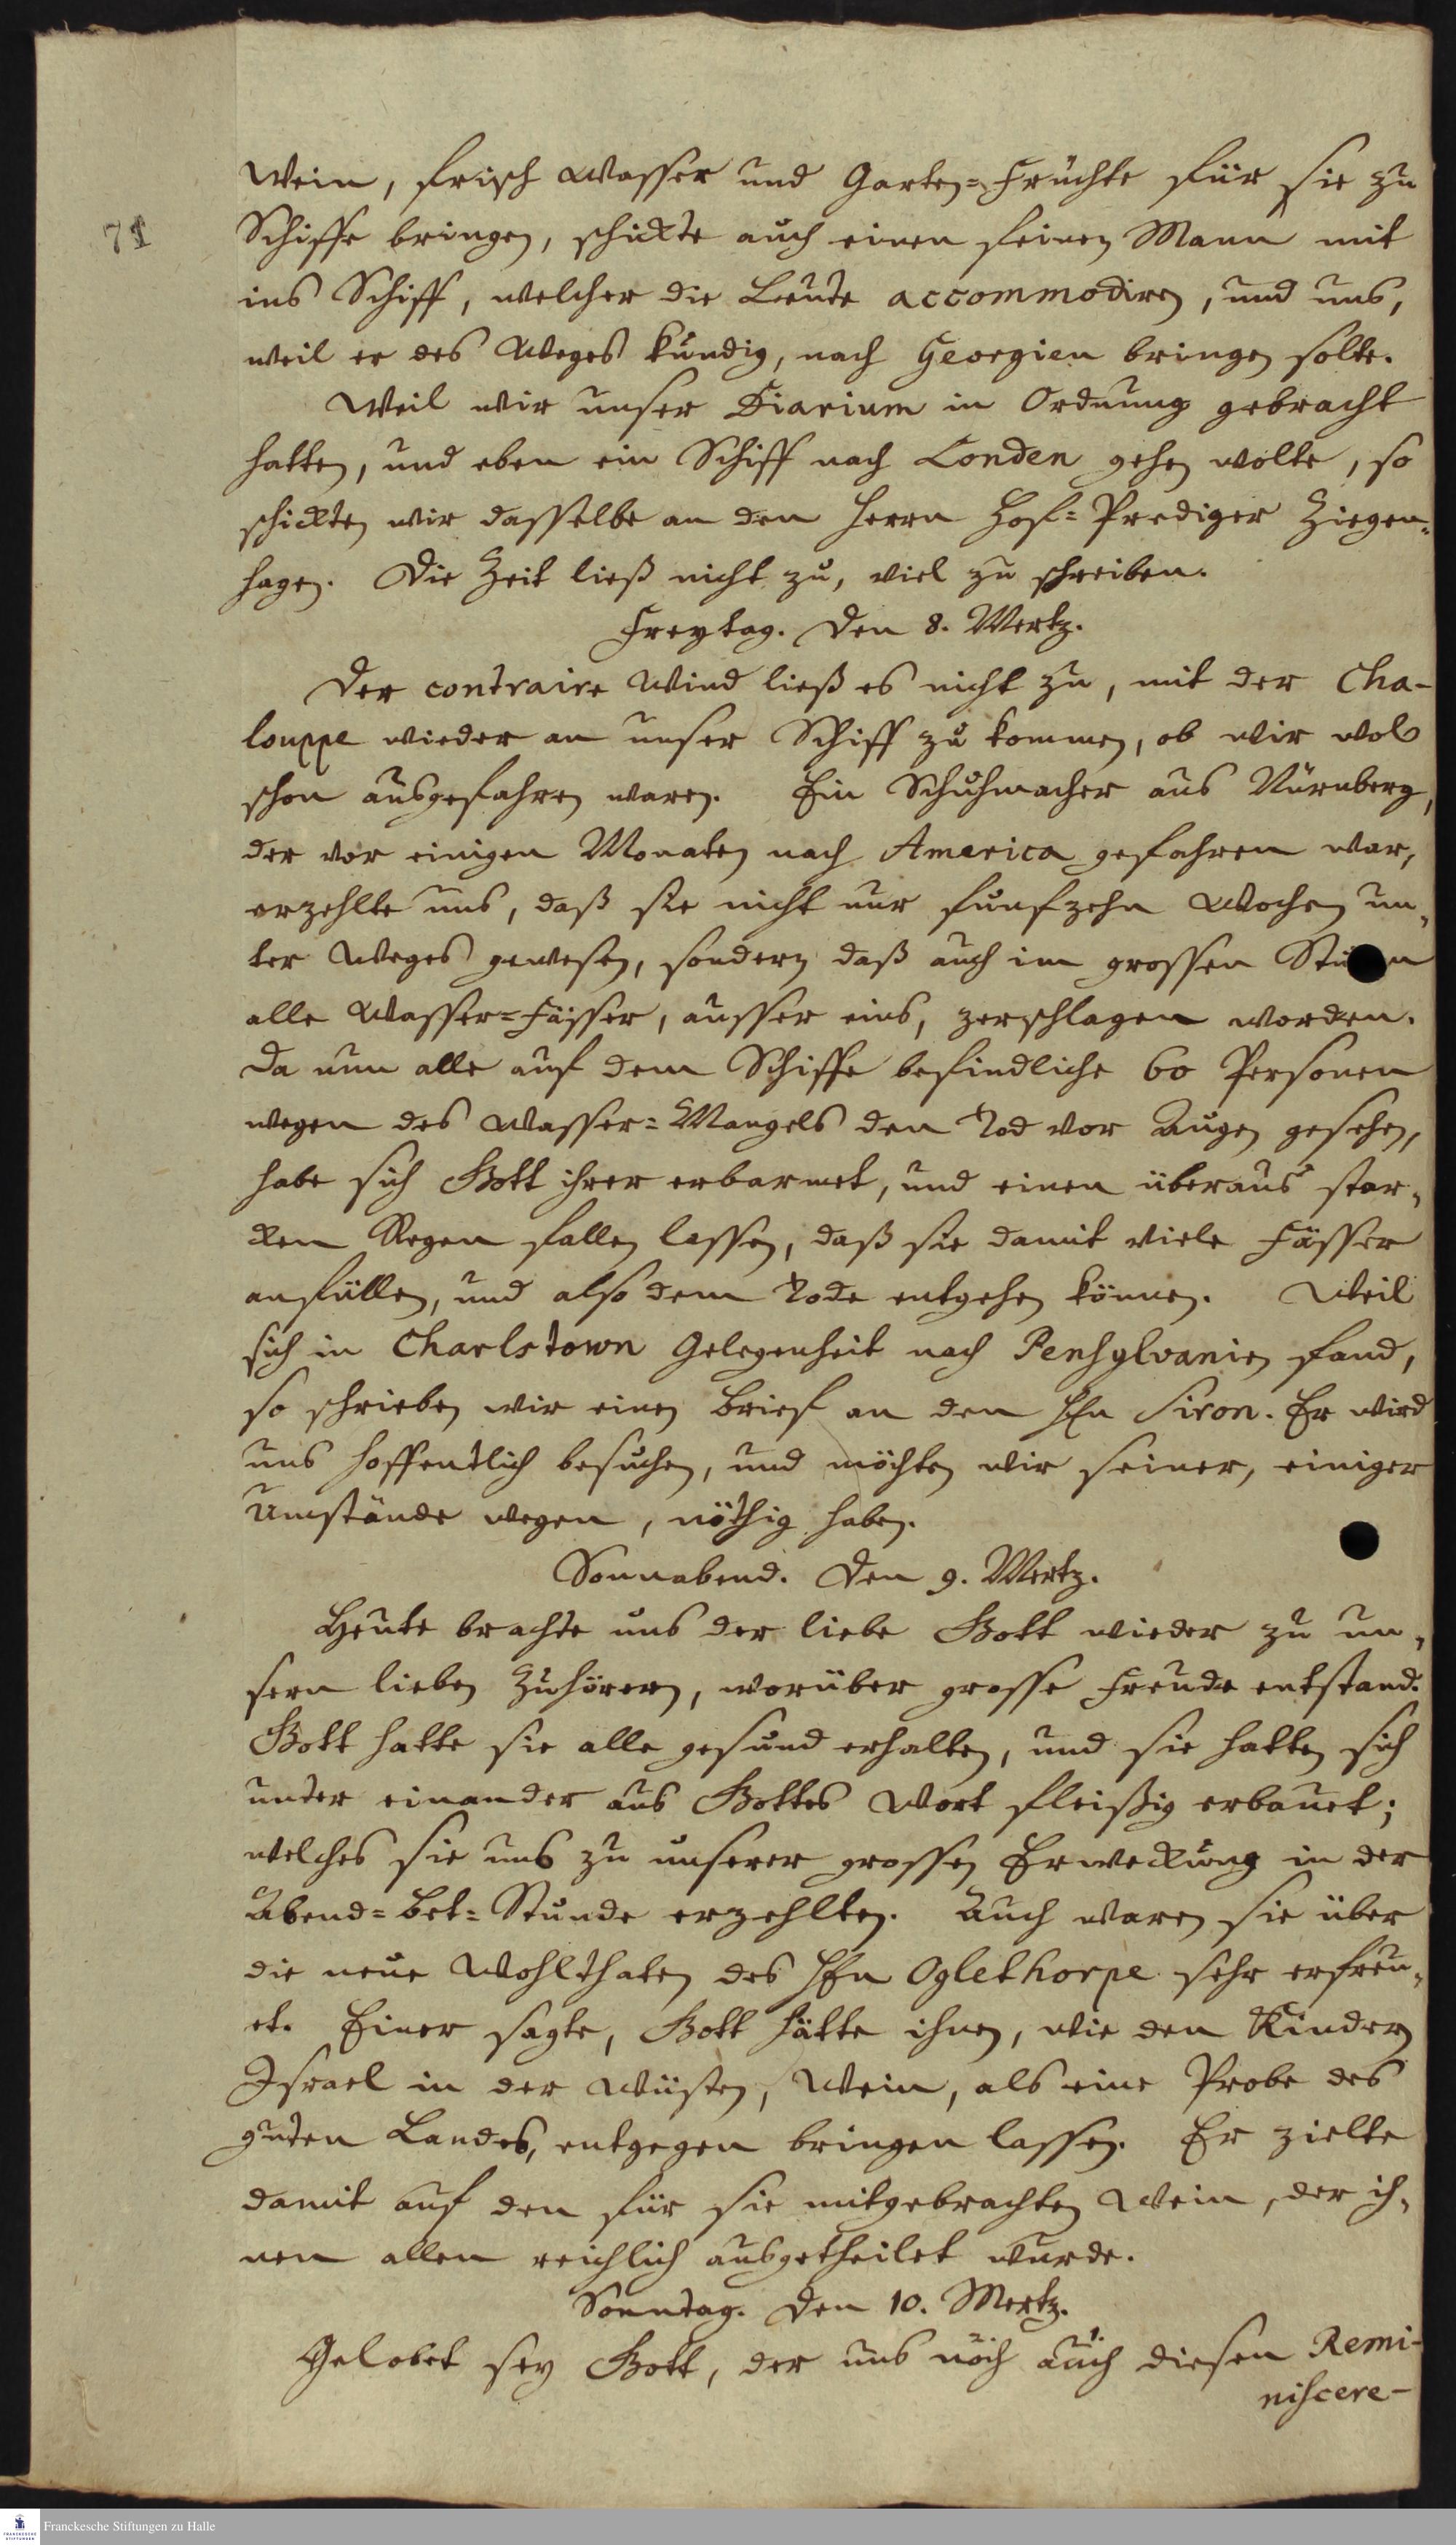 71
Wein, frisch Wasser und Garten=Früchte für sie zu
Schiffe bringen, schickte auch einen feinen Mann mit
ins Schiff, welcher die Leute accommodiren, und uns,
weil er des Weges kündig, nach Georgien bringen solte.
Weil wir unser Diarium in Ordnung gebracht
hatten, und eben ein Schiff nach Londen gehen wolte, so
schickten wir dasselbe an den Herrn Hof=Prediger Ziegen=
hagen. Die Zeit ließ nicht zu, viel zu schreiben.
Freytag. Den 8. Mertz.
Der contraire Wind ließ es nicht zu, mit der Cha-
louppe wieder an unser Schiff zu kommen, ob wir wol
schon ausgefahren waren. Ein Schuhmacher aus Nürnberg,
der vor einigen Monaten nach America gefahren war,
erzehlte uns, daß sie nicht nur funfzehn Wochen un=
ter Weges gewesen, sondern daß auch im grossen
alle Wasser=Fässer, ausser eins, zerschlagen worden.
Da nun alle auf dem Schiffe befindliche 60 Personen
wegen des Wasser=Mangels den Tod vor Augen gesehen,
habe sich Gott ihrer erbarmet, und einen überaus star=
cken Regen fallen lassen, daß sie damit viele Fässer
anfüllen, und also dem Tode entgehen können. Weil
sich in Charlstown Gelegenheit nach Pensylvanien fand,
so schrieben wir einen Brief an den HEn Siron. Er wird
uns hoffentlich besuchen, und möchten wir seiner, einiger
Umstände wegen, nöthig haben.
Sonnabend. Den 9. Mertz.
Heute brachte uns der liebe Gott wieder zu un=
sern lieben Zuhörern, worüber grosse Freude entstand.
Gott hatte sie alle gesund erhalten, und sie hatten sich
unter einander aus Gottes Wort fleißig erbauet;
welches sie uns zu unserer grossen Erweckung in der
Abend=Bet=Stunde erzehlten. Auch waren sie über
die neue Wohlthaten des HEn Oglethorpe sehr erfreu=
et. Einer sagte, Gott hätte ihnen, wie den Kindern
Israel in der Wüsten, Wein, als eine Probe des
guten Landes, entgegen bringen lassen. Er zielte
damit auf den für sie mitgebrachten Wein, der ih=
nen allen reichlich ausgetheilet wurde.
Sonntag. Den 10. Mertz.
Gelobet sey Gott, der uns noch auch diesen Remi-
niscere-
Franckesche Stiftungen zu Halle